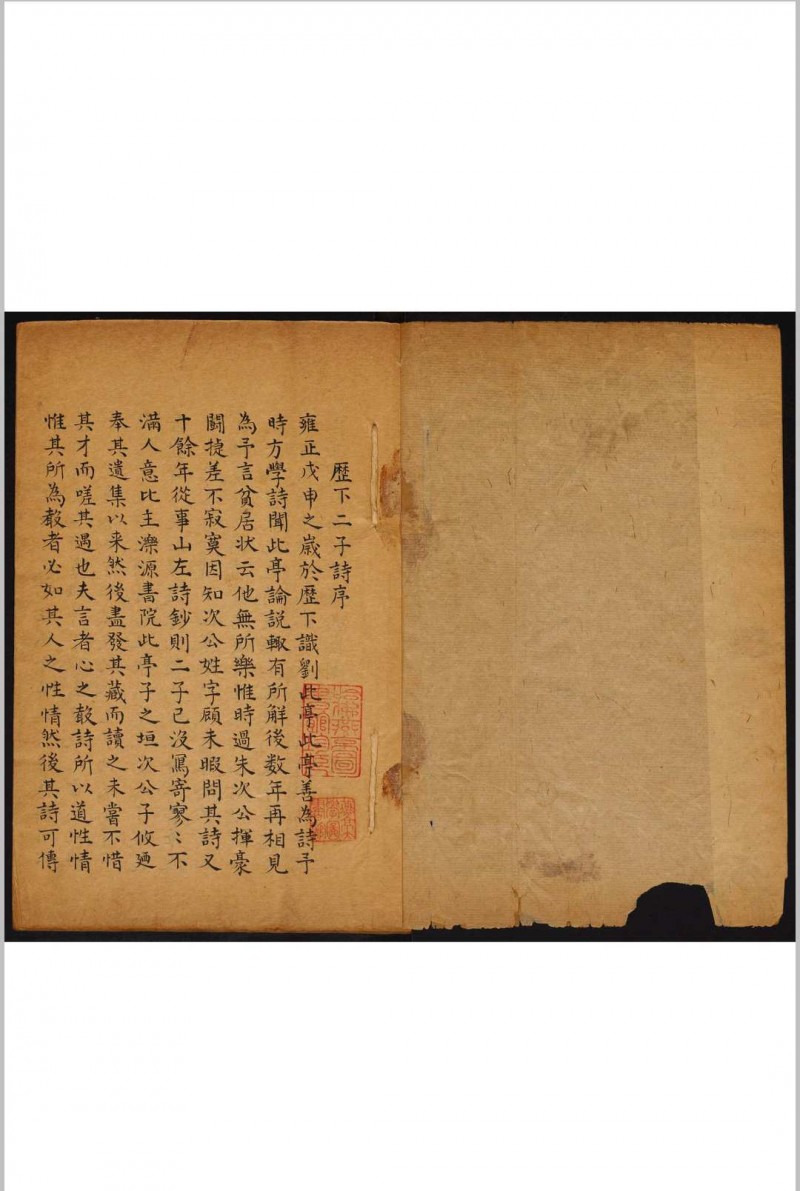 歷下二子詩序
雍正戊申之歲於歷下識劉此亭此亭善為詩予
時方學詩聞此亭論說輙有所解後数年再相見
為予言貧居状云他無所樂惟時過朱次公揮豪
闘捷差不寂寞因知次公姓字顧未暇問其詩又
十餘年從事山左詩鈔則二子已沒寓寄寥〻不
滿人意比主濼源書院此亭子之垣次公子攸廼
奉其遺集以来然後盡發其藏而讀之未嘗不惜
其才而嗟其遇也夫言者心之聲詩所以道性情
惟其所為聲者必如其人之性情然後其詩可傳